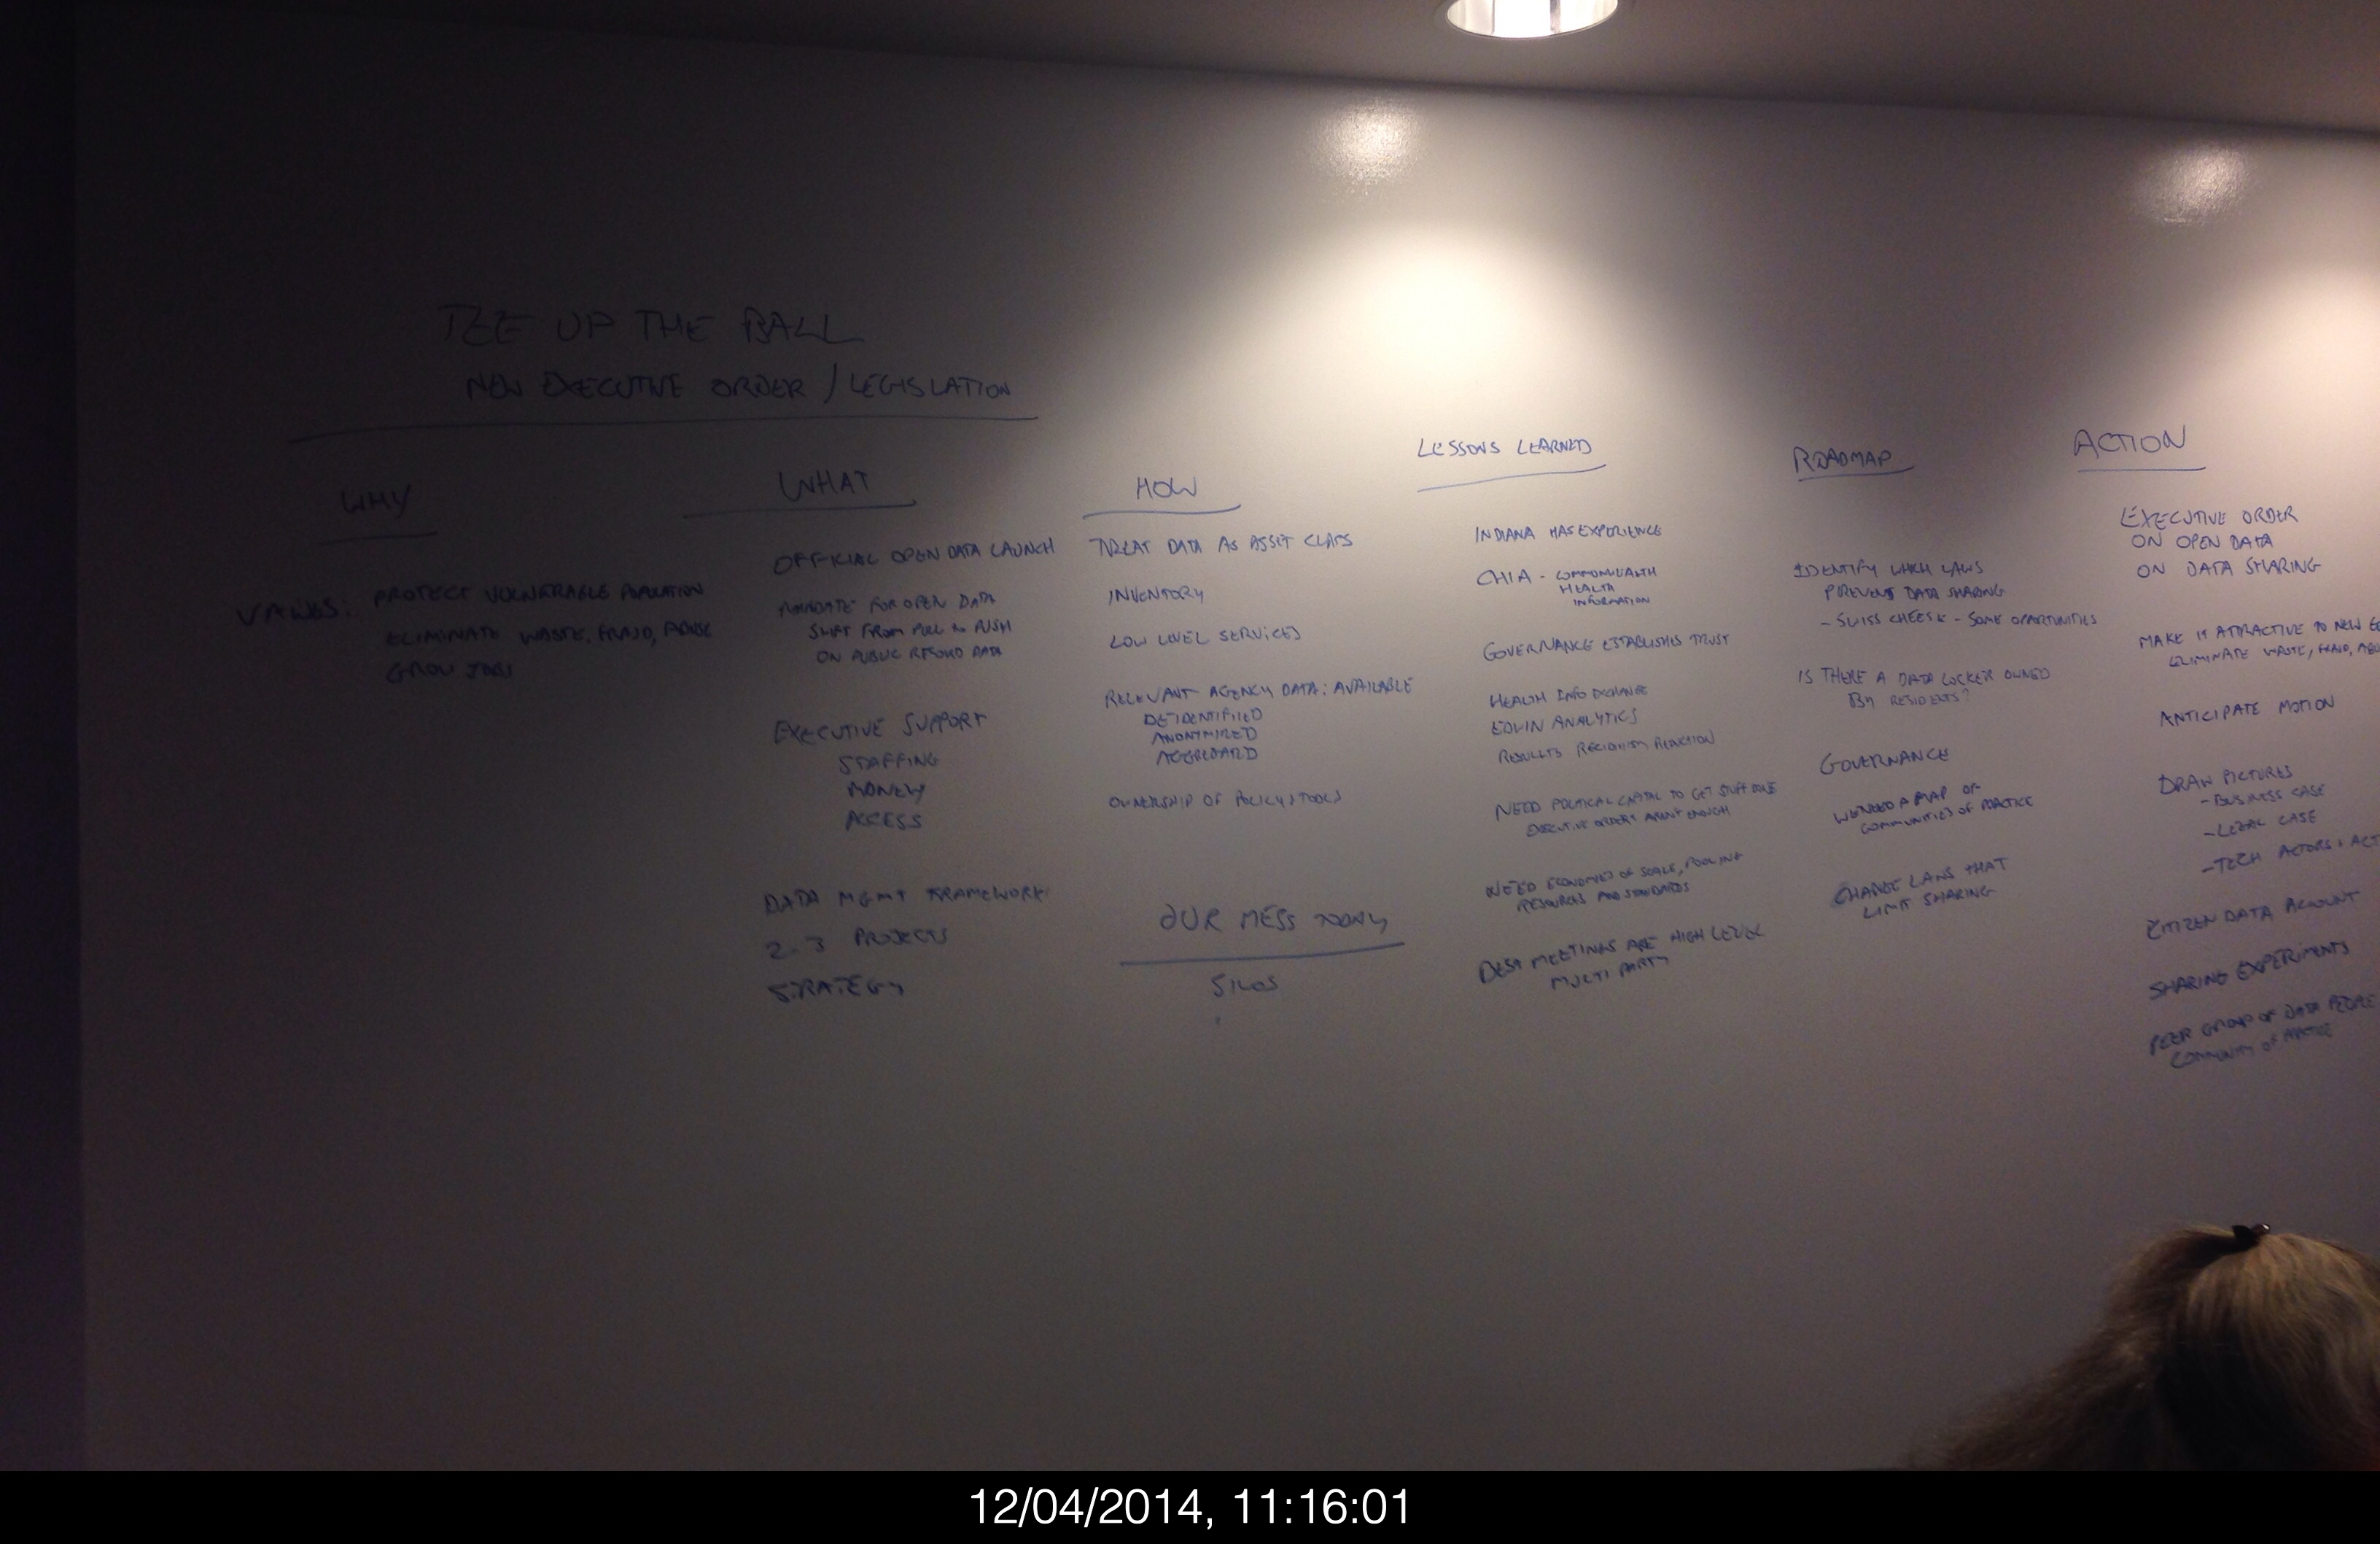 TEE UP THE BALL
NEW EXECUTIVE ORDER / LEGISLATION
WHY
VALUES: PROTECT VULNERABLE POPULATION
ELIMINATE WASTE, FRAUD, ABUSE
GROW JOBS
WHAT
OFFICIAL OPEN DATA LAUNCH
MANDATE FOR OPEN DATA
SHIFT FROM PULL TO PUSH
ON PUBLIC RECORD DATA
EXECUTIVE SUPPORT
STAFFING
MONEY
ACCESS
DATA MGMT FRAMEWORK
2-3 PROJECTS
STRATEGY
HOW
TREAT DATA AS ASSET CLASS
INVENTORY
LOW LEVEL SERVICES
RELEVANT AGENCY DATA: AVAILABLE
DEIDENTIFIED
ANONYMIZED
OWNERSHIP OF POLICY & TOOLS
OUR MESS TODAY
SILOS
LESSONS LEARNED
INDIANA HAS EXPERIENCE
CHIA - COMMONWEALTH
HEALTH
INFORMATION
GOVERNANCE ESTABLISHES TRUST
HEALTH INFO EXCHANGE
EDWIN ANALYTICS
RESULTS RECIDIVISM REDUCTION
NEED POLITICAL CAPITAL TO GET STUFF DONE
EXECUTIVE ORDERS AREN'T ENOUGH
NEED ECONOMIES OF SCALE, POOLING
RESOURCES AND STANDARDS
BEST MEETINGS ARE HIGH LEVEL
MULTI PARTY
ROADMAP
IDENTIFY WHICH LAWS
PREVENT DATA SHARING
- SWISS CHEESE - SOME OPPORTUNITIES
IS THERE A DATA LOCKER OWNED
BY RESIDENTS?
GOVERNANCE
WE NEED A MAP OF
COMMUNITIES OF PRACTICE
CHANGE LAWS THAT
LIMIT SHARING
ACTION
EXECUTIVE ORDER
ON OPEN DATA
ON DATA SHARING
MAKE IT ATTRACTIVE TO NEW
ELIMINATE WASTE, FRAUD,
ANTICIPATE MOTION
DRAW PICTURES
- BUSINESS CASE
- LEGAL CASE
- TECH ACTORS &
CITIZEN DATA ACCOUNT
SHARING EXPERIMENTS
PEER GROUP OF DATA PEOPLE
COMMUNITY OF PRACTICE
12/04/2014, 11:16:01